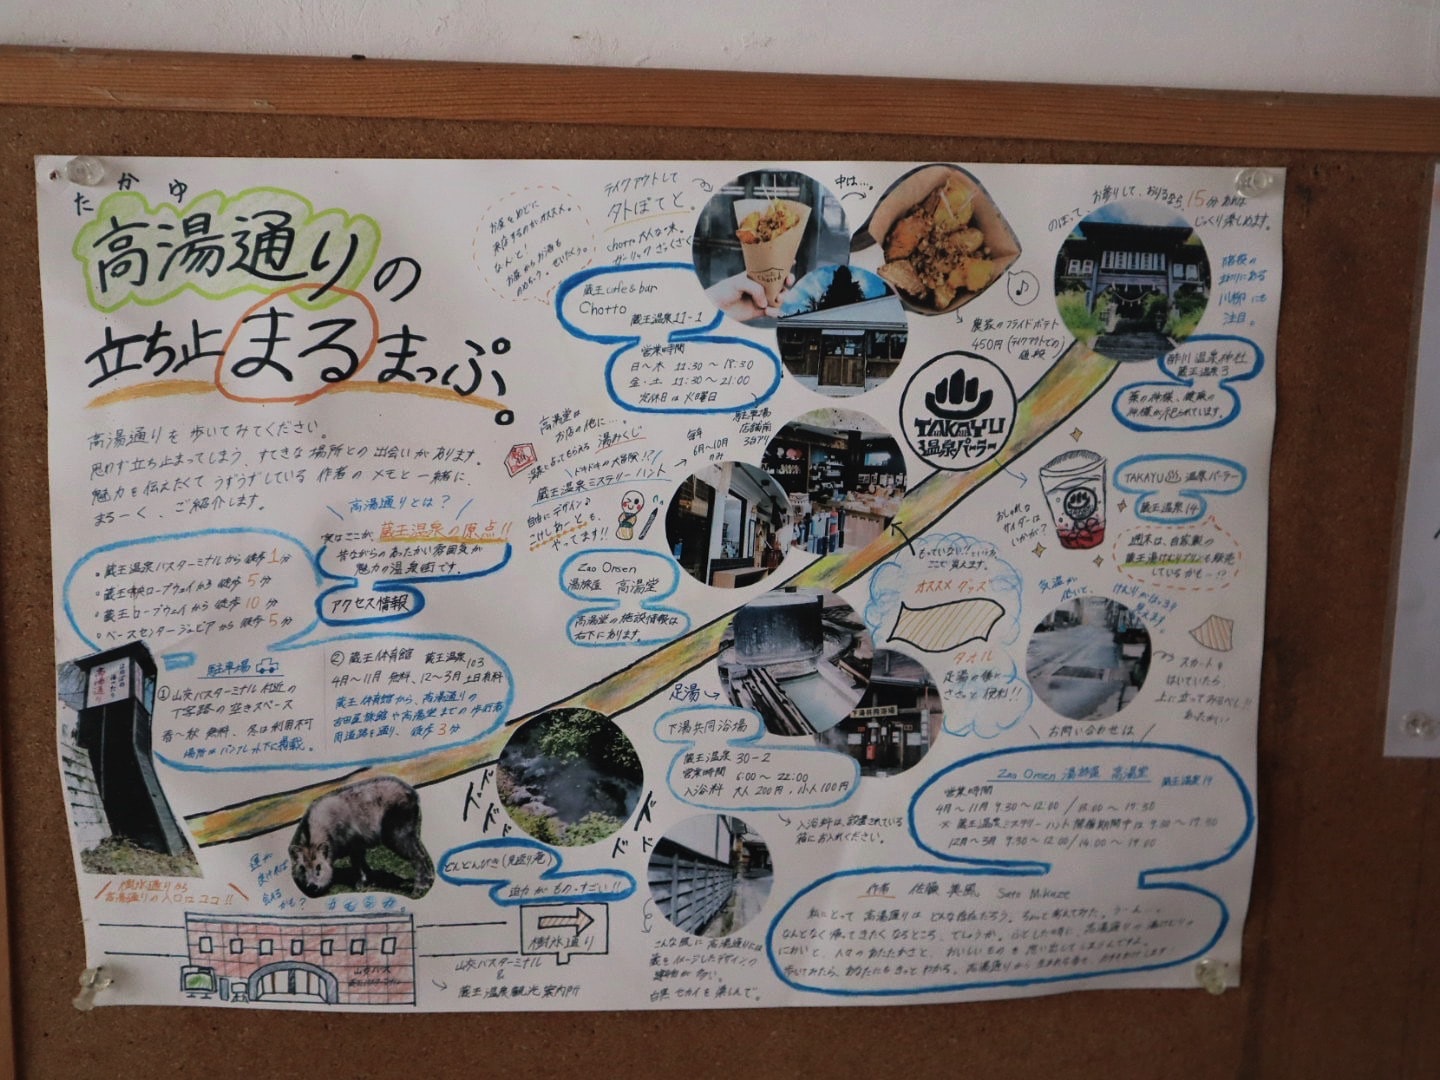 たかゆ
高湯通りの
立ち止まるまっぷ。
高湯通りを歩いてみてください。
思わず立ち止まってしまう、すてきな場所との出会いがあります。
魅力を伝えたくてうずうずしている作者のメモと一緒に、
まるーく、ご紹介します。
高湯通りとは？
実はここが、蔵王温泉の原点!!
昔ながらのあったかい雰囲気が
魅力の温泉街です。
アクセス情報
・蔵王温泉バスターミナルから徒歩1分
・蔵王中央ロープウェイから徒歩5分
・蔵王ロープウェイから徒歩10分
・ベースセンタージュピアから徒歩5分
駐車場
①山交バスターミナル付近の
T字路の空きスペース
春〜秋 無料、冬は利用不可
場所はパンフレット下に掲載。
②蔵王体育館 蔵王温泉103
4月〜11月 無料、12〜3月 土日有料
蔵王体育館から、高湯通りの
吉田屋旅館や高湯堂までの歩行者
用道路を通り、徒歩3分
高湯通り
樹氷通りから
高湯通りの入り口はココ!!
運が
良ければ
会える
かも？
カモシカ。
山交バス
樹氷通り
山交バスターミナル
&
蔵王温泉観光案内所
お昼をめどに
来店するのがオススメ。
なんと！
お昼からお酒も
のめちゃう。ぜいたくぅ。
テイクアウトして
外ぼてと。
chotto大人な味。
ガーリックざっくざく
中は…。
蔵王cafe&bar
Chotto
蔵王温泉11-1
営業時間
日〜木 11:30〜18:30
金・土 11:30〜21:00
定休日は火曜日
駐車場
店舗前
3台アリ
農家のフライドポテト
450円(テイクアウトでの
値段)
のぼって
お参りして、おりるなら、15分あれば
じっくり楽しめます。
階段の
わきにある
川柳にも
注目。
酢川温泉神社
蔵王温泉3
薬の神様、健康の
神様が祀られています。
TAKAYU
温泉パーラー
TAKAYU温泉パーラー
蔵王温泉14
おしゃれな
サイダーは
いかが？
週末は、自家製の
蔵王湯けむりプリンも販売
しているかも…!?
高湯堂は
お店の他に…。
毎年
6月〜10月
のみ
縁によってもらえる湯みくじ
ドキドキの大冒険!?
蔵王温泉ミステリーハント
自由にデザイン♪
こけしあーとも、
やってます!!
Zao Onsen
湯旅屋 高湯堂
高湯堂の施設情報は
右下にあります。
もっていない？という方、
ここで買えます。
オススメグッズ
タオル
足湯の後に
ささっと便利!!
気温が
低いと、
けむりがはっきり
見えます。
スカートを
はいていたら、
上に立ってみるべし!!
あったかい
足湯
下湯共同浴場
下湯共同浴場
蔵王温泉30-2
営業時間 6:00〜22:00
入浴料 大人200円、小人100円
入浴料は、設置されている
箱にお入れください。
ドドドド
ドドド
どんどんびき(見返り滝)
迫力がものっすごい!!
こんな風に高湯通りには
蔵をイメージしたデザインの
建物が多い。
白黒セカイを楽しんで。
お問い合わせは
Zao Onsen 湯旅屋 高湯堂 蔵王温泉19
営業時間
4月〜11月 9:30〜12:00 / 13:00〜17:30
※ 蔵王温泉ミステリーハント開催期間中は 9:00〜17:30
12月〜3月 9:30〜12:00 / 14:00〜19:00
作者 佐藤 美風 Sato Mikaze
私にとって高湯通りはどんな存在だろう。ちょっと考えてみた。うーん…。
なんとなく帰ってきたくなるところ、でしょうか。ふとした時に、高湯通りの湯けむりの
においと、人々のあたたかさと、おいしいものを思い出してしまうんですよ。
歩いてみたら、あなたにもきっとわかる。